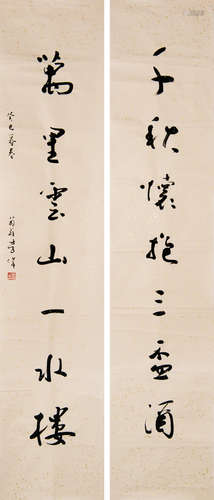 千秋懷抱三杯酒
萬里雲山一水樓
癸巳暮春